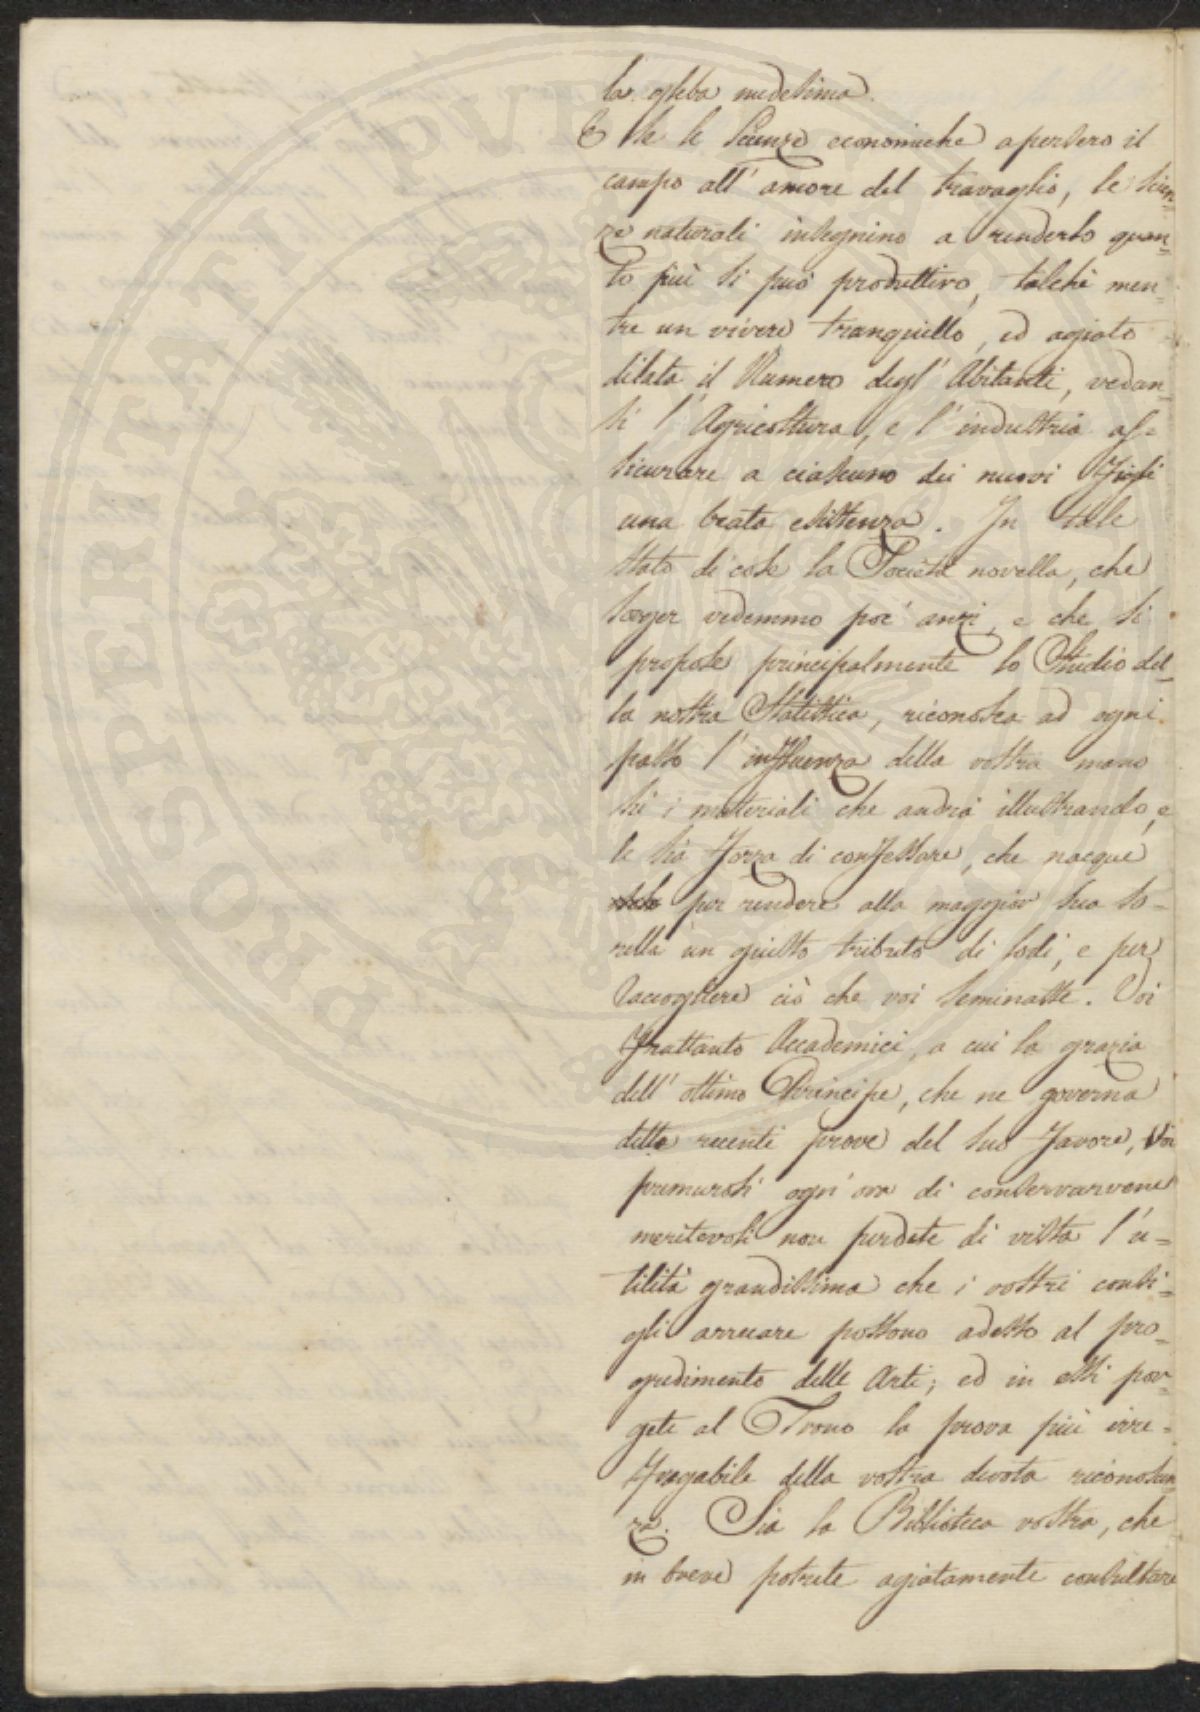 la gleba medesima.
E se le Scienze economiche apersero il
campo all' amore del travaglio, le scien=
ze naturali insegnino a renderlo quan=
to più si può produttivo, talchè men=
tre un vivere tranquillo, ed agiato
dilata il Numero degl' Abitanti, vedan=
si l' Agricoltura, e l' industria as=
sicurare a ciascuno dei nuovi Figli
una beata esistenza. In tale
stato di cose la Società novella, che
sorger vedemmo poc' anzi, e che si
propose principalmente lo Studio del=
la nostra Statistica, riconosca ad ogni
passo l' influenza della vostra mano
su i materiali che andrà illustrando, e
le sia forza di confessare, che nacque
solo per rendere alla maggior sua so=
rella un giusto tributo di lodi, e per
raccogliere ciò che voi seminaste. Voi
frattanto Accademici, a cui la grazia
dell' ottimo Principe, che ne governa
dette recenti prove del suo favore, Voi
premurosi ogn' ora di conservarvene
meritevoli non perdete di vista l' u=
tilità grandissima che i vostri consi=
gli arrecare possono adesso al pro=
gredimento delle Arti; ed in essi por=
gete al Trono la prova più irre=
fragabile della vostra devota riconoscen=
za. Sia la Biblioteca vostra, che
in breve potrete agiatamente consultare
PROSPERITATI PVBLICAE